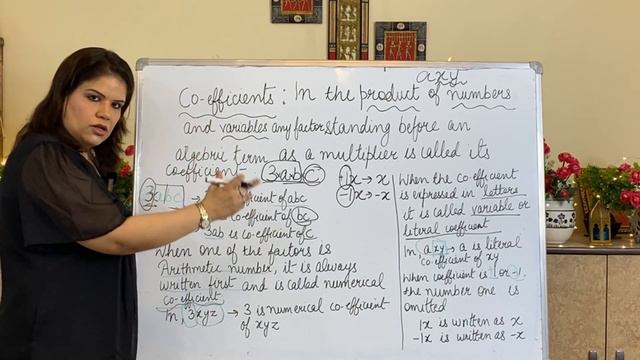 axy
Co-efficients: In the product of numbers
and variables any factor standing before an
algebric term as a multiplier is called its
coefficient 3×a×b×c
3abc → efficient of abc
co-efficient of bc
3ab is co-efficient of c
When one of the factors is
Arithmetic number, it is always
written first and is called numerical
co-efficient
In, 3xyz → 3 is numerical co-efficient
of xyz
1x → x
-1x → -x
When the co-efficient
is expressed in letters
it is called variable or
literal coefficient
In, axy → a is literal
co-efficient of xy
When coefficient is 1 or -1
the number one is
omitted
1x is written as x
-1x is written as -x